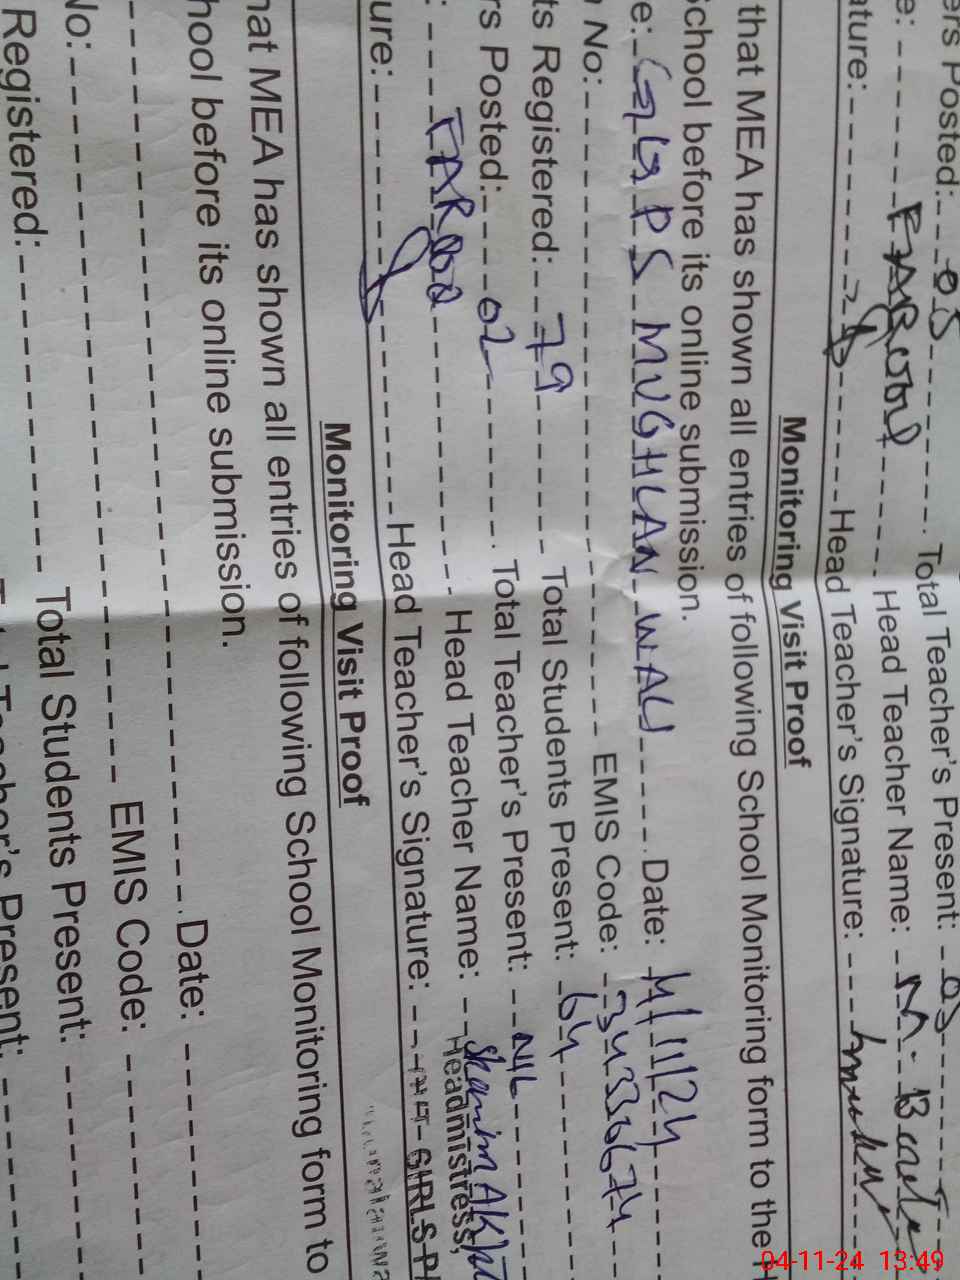 ers Posted: 05 Total Teacher's Present: 05
e: FAROOQ Head Teacher Name: M.
ature: Head Teacher's Signature:
Monitoring Visit Proof
that MEA has shown all entries of following School Monitoring form to the
School before its online submission.
e: GGPS MUGHLAN WALI Date: 4/11/24
No: EMIS Code: 34330674
ts Registered: 79 Total Students Present: 64
rs Posted: 02 Total Teacher's Present: NIL
: FAROOQ Head Teacher Name: Shamim Akhtar
Headmistress,
ure: Head Teacher's Signature: GIRLS
Monitoring Visit Proof
hat MEA has shown all entries of following School Monitoring form to
hool before its online submission.
Date:
No: EMIS Code:
Registered: Total Students Present:
Present:
04-11-24 13:49